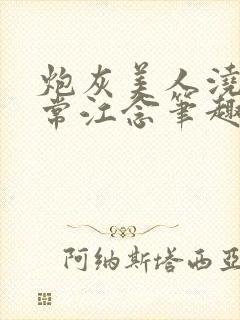 炮灰美人浇
常江念笔趣
阿纳斯塔西亚